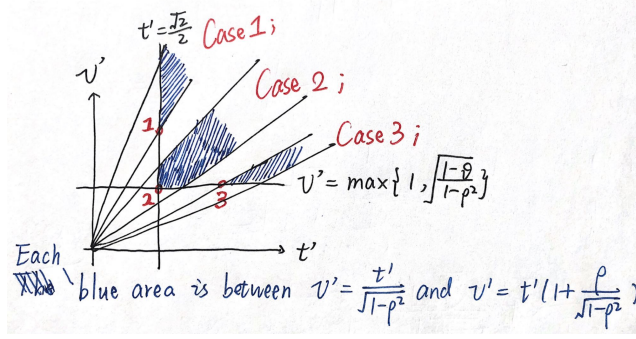 t'=√2/2 Case 1;
v'
Case 2;
1
Case 3;
v' = max{1, √((1-ρ)/(1-ρ²))}
2 3
t'
Each
blue area is between v' = t'/√(1-ρ²) and v' = t'(1+ ρ/√(1-ρ²))